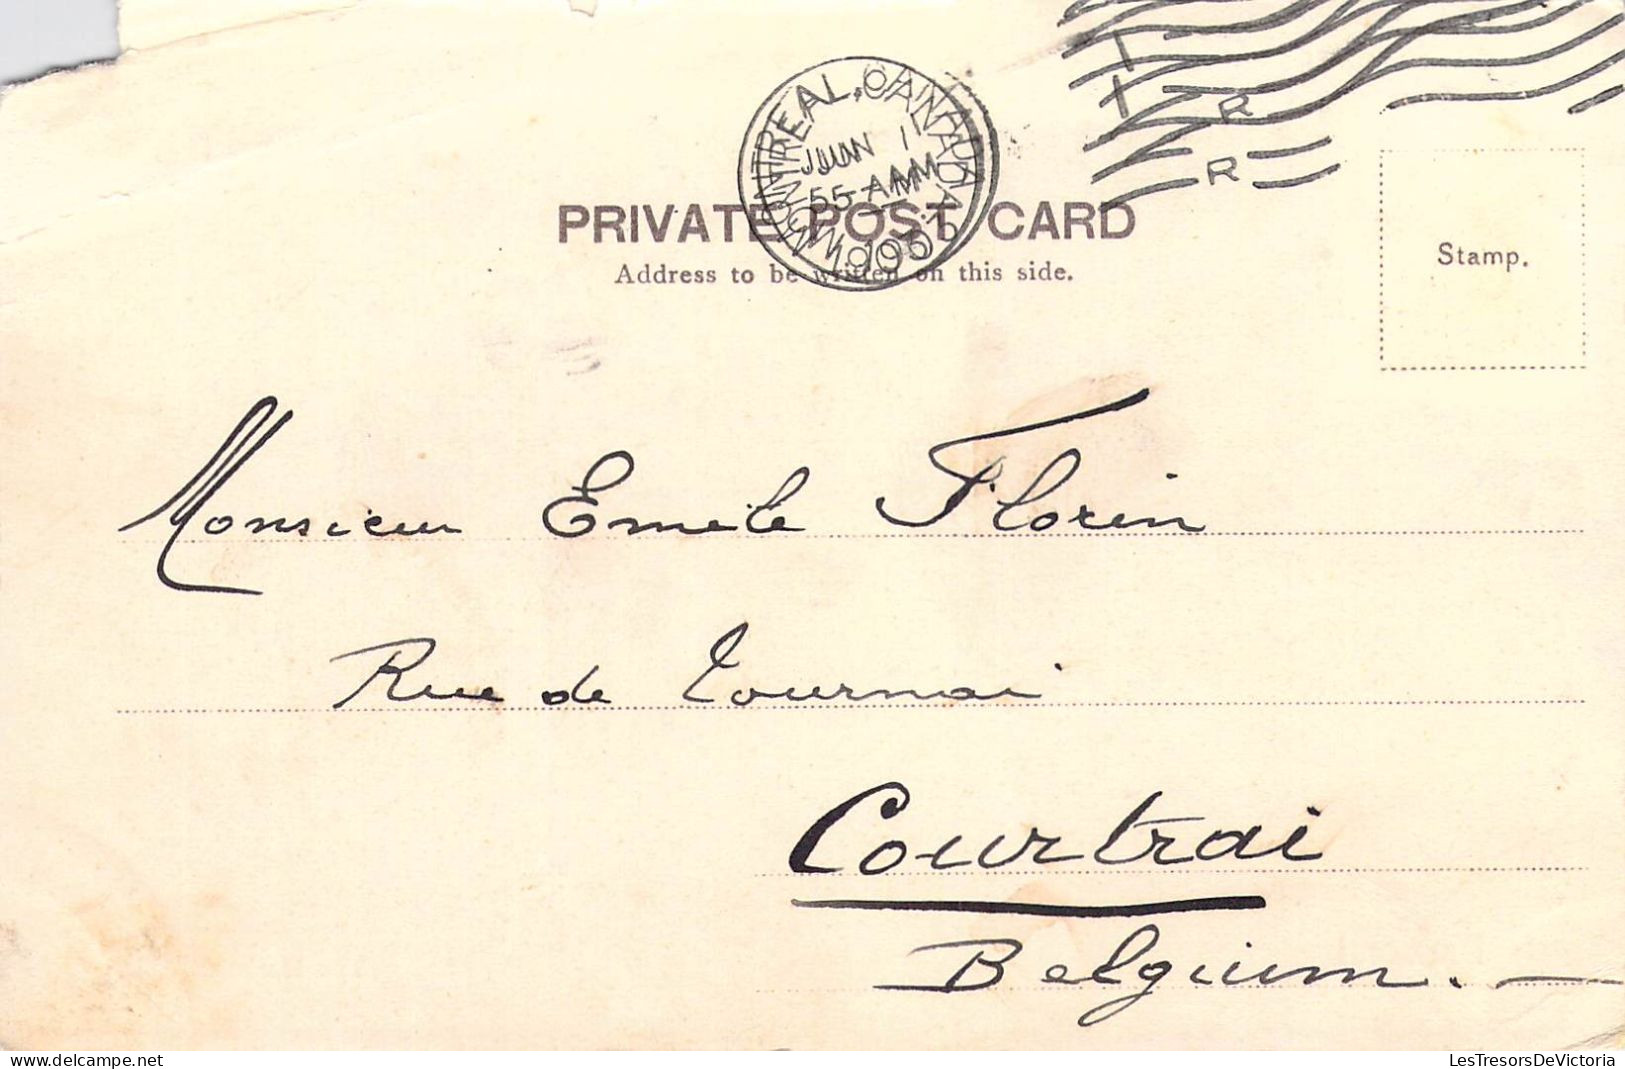 MONTREAL, CANADA
JUN 1
5-AM
R
R
PRIVATE POST CARD
Address to be written on this side.
Stamp.
Monsieur Emile Florin
Rue de Tournai
Courtrai
Belgium.
www.delcampe.net
LesTresorsDeVictoria